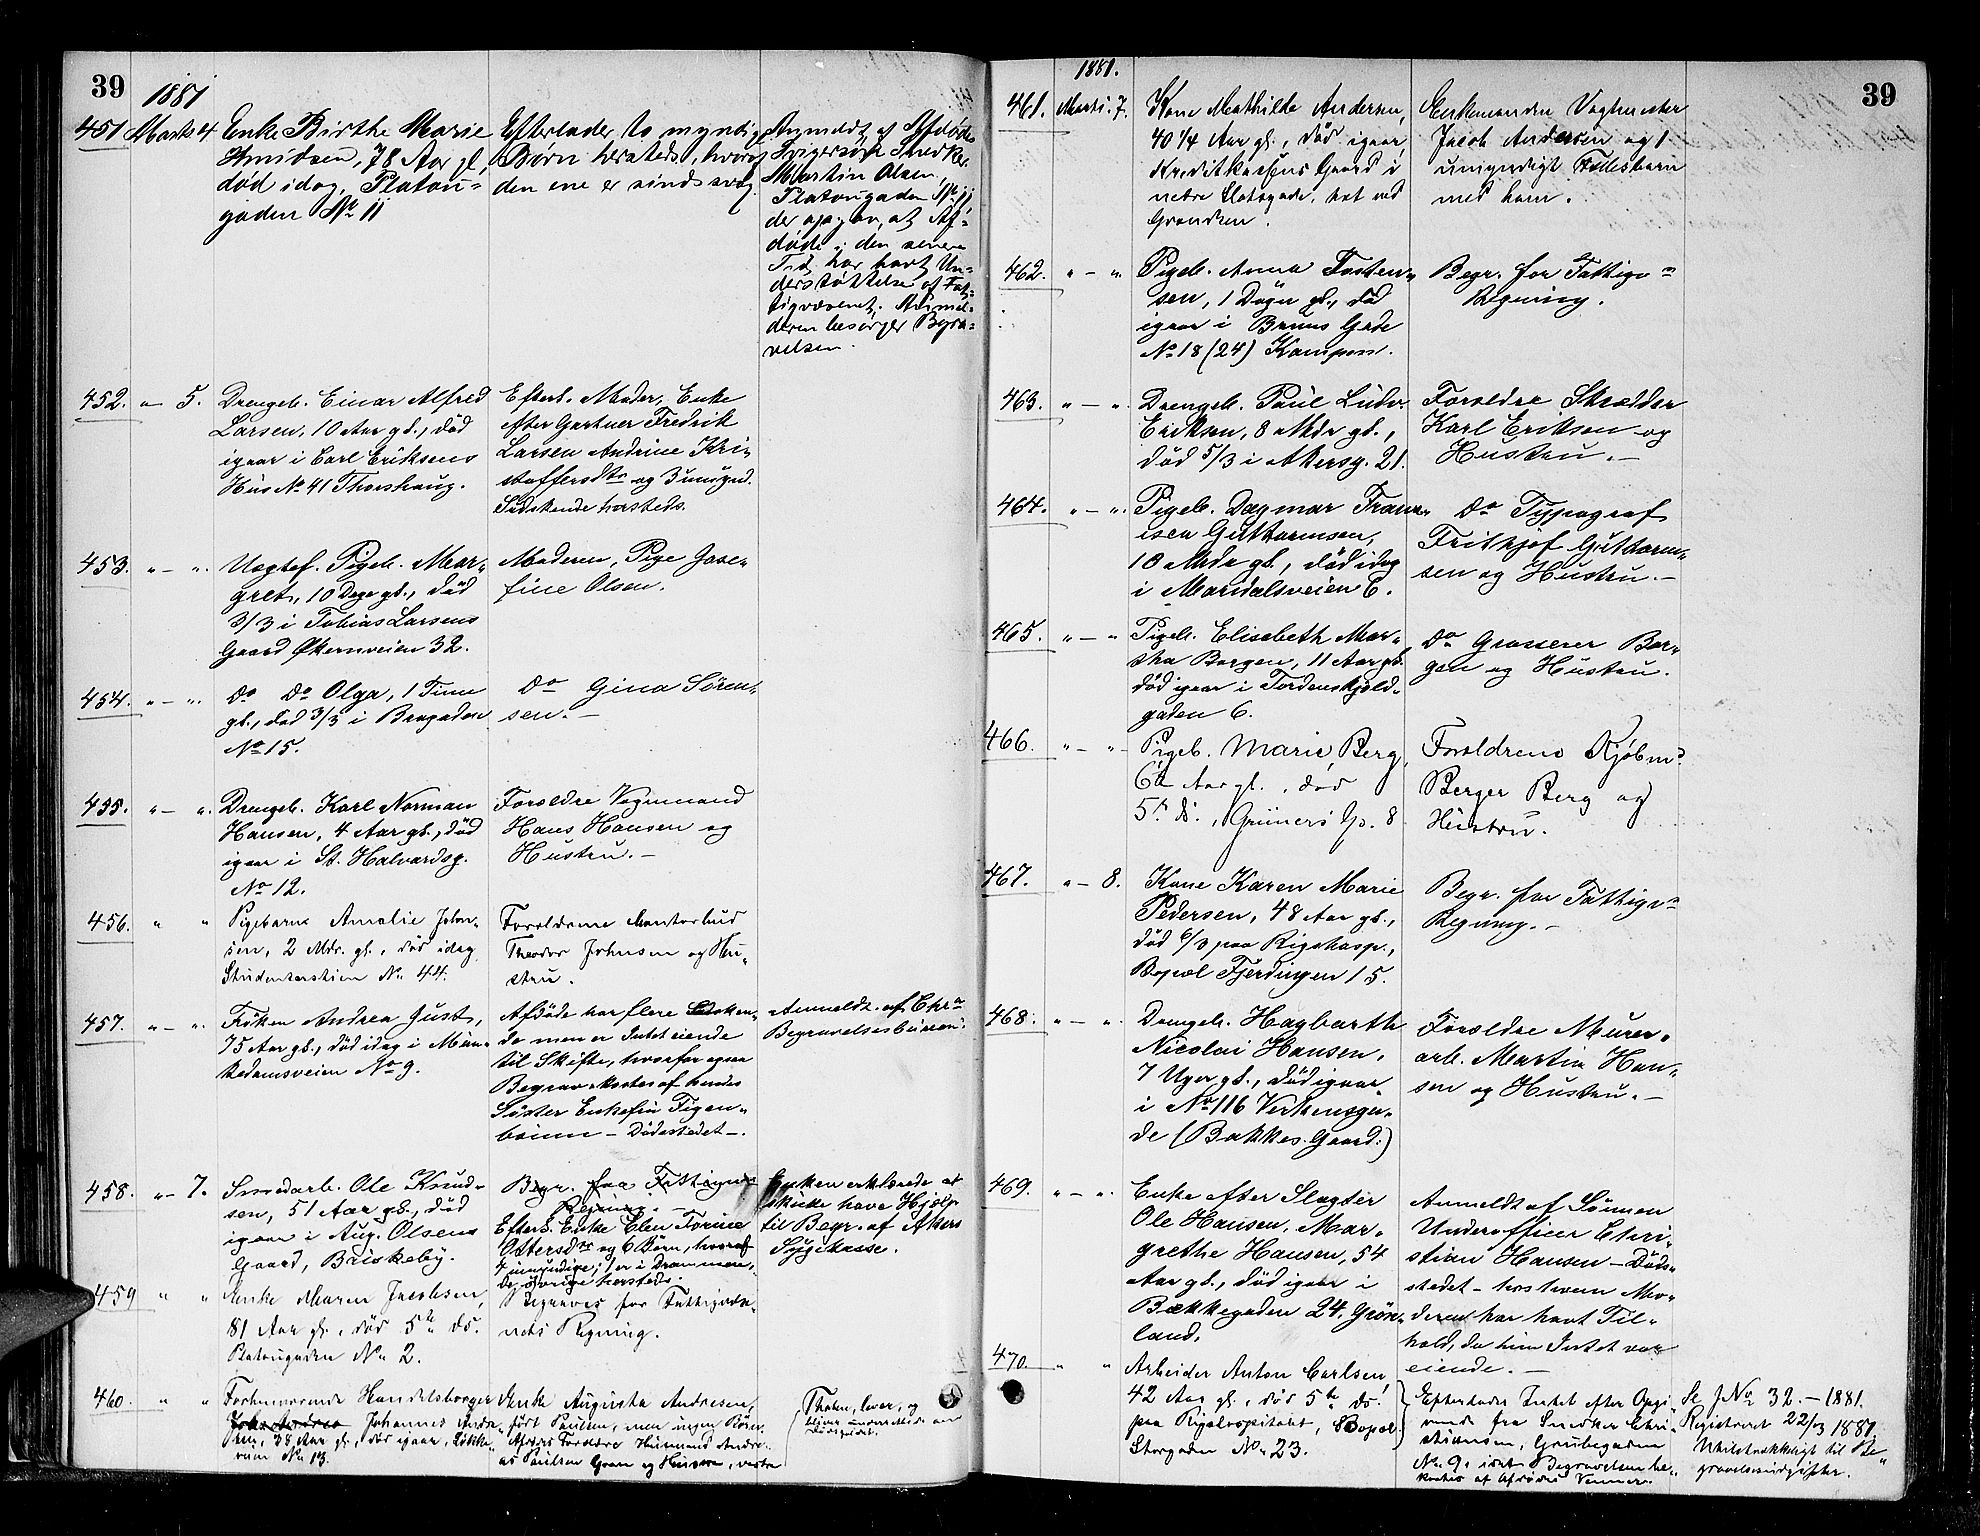 39
1881
451 Marts 4 Enke Birthe Marie
Knudsen, 78 Aar gl,
død idag, Platou-
gaden No 11
Efterlader to myndige
Børn hersteds, hvoraf
den ene er sindssvag
Anmeldt af Afdødes
Svigersøn Snedker
Martin Olsen,
Platougaden No 11,
der opgav, at Af-
døde i den senere
Tid har havt Un-
derstøttelse af Fat-
tigvæsenet. Anmel-
deren besørger Begra-
velsen.
452. " 5. Drengeb. Einar Alfred
Larsen, 10 Aar gl., død
igaar i Carl Eriksens
Hus No 41 Thorshaug.
Efterl. Moder, Enke
efter Gartner Fredrik
Larsen Andrine Kri-
stoffersdtr og 3 umynd.
Sødskende hersteds.
453. " - " Uægtef. Pigeb. Mar-
gret, 10 Dage gl., død
3/3 i Tobias Larsens
Gaard Økernveien 32.
Moderen, Pige Jose-
fine Olsen.
454. " - " Do Do Olga, 1 Time
gl., død 3/3 i Bergaden
No 15.
Do Gina Søren-
sen. -
455. " - " Drengeb. Karl Norman
Hansen, 4 Aar gl., død
igaar i St. Halvardsg.
No 12.
Forældre Vognmand
Hans Hansen og
Hustru. -
456. " " Pigebarn Amalie John-
sen, 2 Mdr. gl., død idag
Studenterstien No 44.
Forældrene Kontorbud
Theodor Johnsen og Hu-
stru.
457. " - " Frøken Andrea Just,
75 Aar gl., død idag i Mun-
kedamsveien No 9.
Afdøde har flere Sødsken-
de men er Intet eiende
til Skifte, hvorfor ogsaa
Begrav. kostes af hendes
Søster Enkefru Figen-
baum - Dødsstedet -.
Anmeldt. af Chra
Begravelsesbureau.
458. " - 7. Smedarb. Ole Knud-
sen, 51 Aar gl., død
igaar i Aug. Olsens
Gaard, Briskeby.
Begr. paa Fattigvæs
Regning. -
Efterl. Enke Elen Torine
Ottersdtr og 6 Børn, hvoraf
4 umyndige, 1 er i Drammen,
de øvrige hersteds.
Enken erklærede at
skulde have Hjælp
til Begr. af Akers
Sygekasse.
459 " " Enke Maren Jacobsen,
81 Aar gl., død 5te ds.
Platougaden No 2.
Begraves for Fattigvæse-
nets Regning.
460. " " Forhenværende Handelsborger
Johannes Andre-
sen, 38 Aar gl., død igaar, Løkke-
veien No 13.
Enke Augusta Andresen,
født Paulsen, men ingen Børn.
Afdødes Forældre Huusmand Andre-
as Paulsen Gran og Hustru, vestre
Thoten, lever, og
bliver underrettede om
Dødsfaldet.
39
1881.
461. Marts. 7. Kone Mathilde Andersen,
40 1/4 Aar gl., død igaar,
Kreditkassens Gaard i
nedre Slotsgade, tæt ved
Grændsen.
Enkemanden Vagtmester
Jacob Andersen og 1
umyndigt Fællesbarn
med ham.
462. " - " Pigeb. Anna Torsten-
sen, 1 Døgn gl., død
igaar i Bruns Gade
No 18 (24) Kampen.
Begr. for Fattigv.
Regning.
463. " - " Drengeb. Paul Ludv.
Eriksen, 8 Mdr gl.,
død 5/3 i Akersg. 21.
Forældre Skrædder
Karl Eriksen og
Hustru. -
464. " - " Pigeb. Dagmar Fran-
isca Guttormsen,
10 Mdr gl., død idag
i Maridalsveien 6.
Do Typograf
Frithjof Guttorm-
sen og Hustru. -
465. " - " Pigeb. Elisabeth Mar-
tha Borgen, 11 Aar gl.
død igaar i Tordenskjold-
gaden 6.
Do Grosserer Bor-
gen og Hustru.
466. " - " Pigeb. Marie Berg,
6 1/2 Aar gl., død
5te ds., Grüners G. 8
Forældrene Kjøbmd
Berger Berg og
Hustru.
467. " - 8. Kone Karen Marie
Pedersen, 48 Aar gl.,
død 6/3 paa Rigshosp.,
Bopæl Fjerdingen 15.
Begr. for Fattigv.
Regning. -
468. " - " Drengeb. Hagbarth
Nicolai Hansen,
7 Uger gl., død igaar
i No 116 Verkensga-
de (Bakkes Gaard.)
Forældre Murer-
arb. Martin Han-
sen og Hustru. -
469. " - " Enke efter Slagter
Ole Hansen, Mar-
grethe Hansen, 54
Aar gl., død igaar i
Bækkegaden 24, Grøn-
land.
Anmeldt af Sønnen
Underofficer Chri-
stian Hansen - Døds-
stedet - hos hvem Mo-
deren har havt Til-
hold, da hun Intet var
eiende. -
470. " " Arbeider Anton Carlsen,
42 Aar gl., død 5te ds.
paa Rigshospitalet, Bopæl:
Storgaden No 23.
Efterlader Intet efter Opgi-
vende fra Snedker Chri-
stiansen, Grubegaden
No 9, idet Begravelsen be-
kostes af Afdødes Venner.
Se J No 32. - 1881.
Registreret 22/3 1881.
Utilstrækkeligt til Be-
gravelsesudgifter.